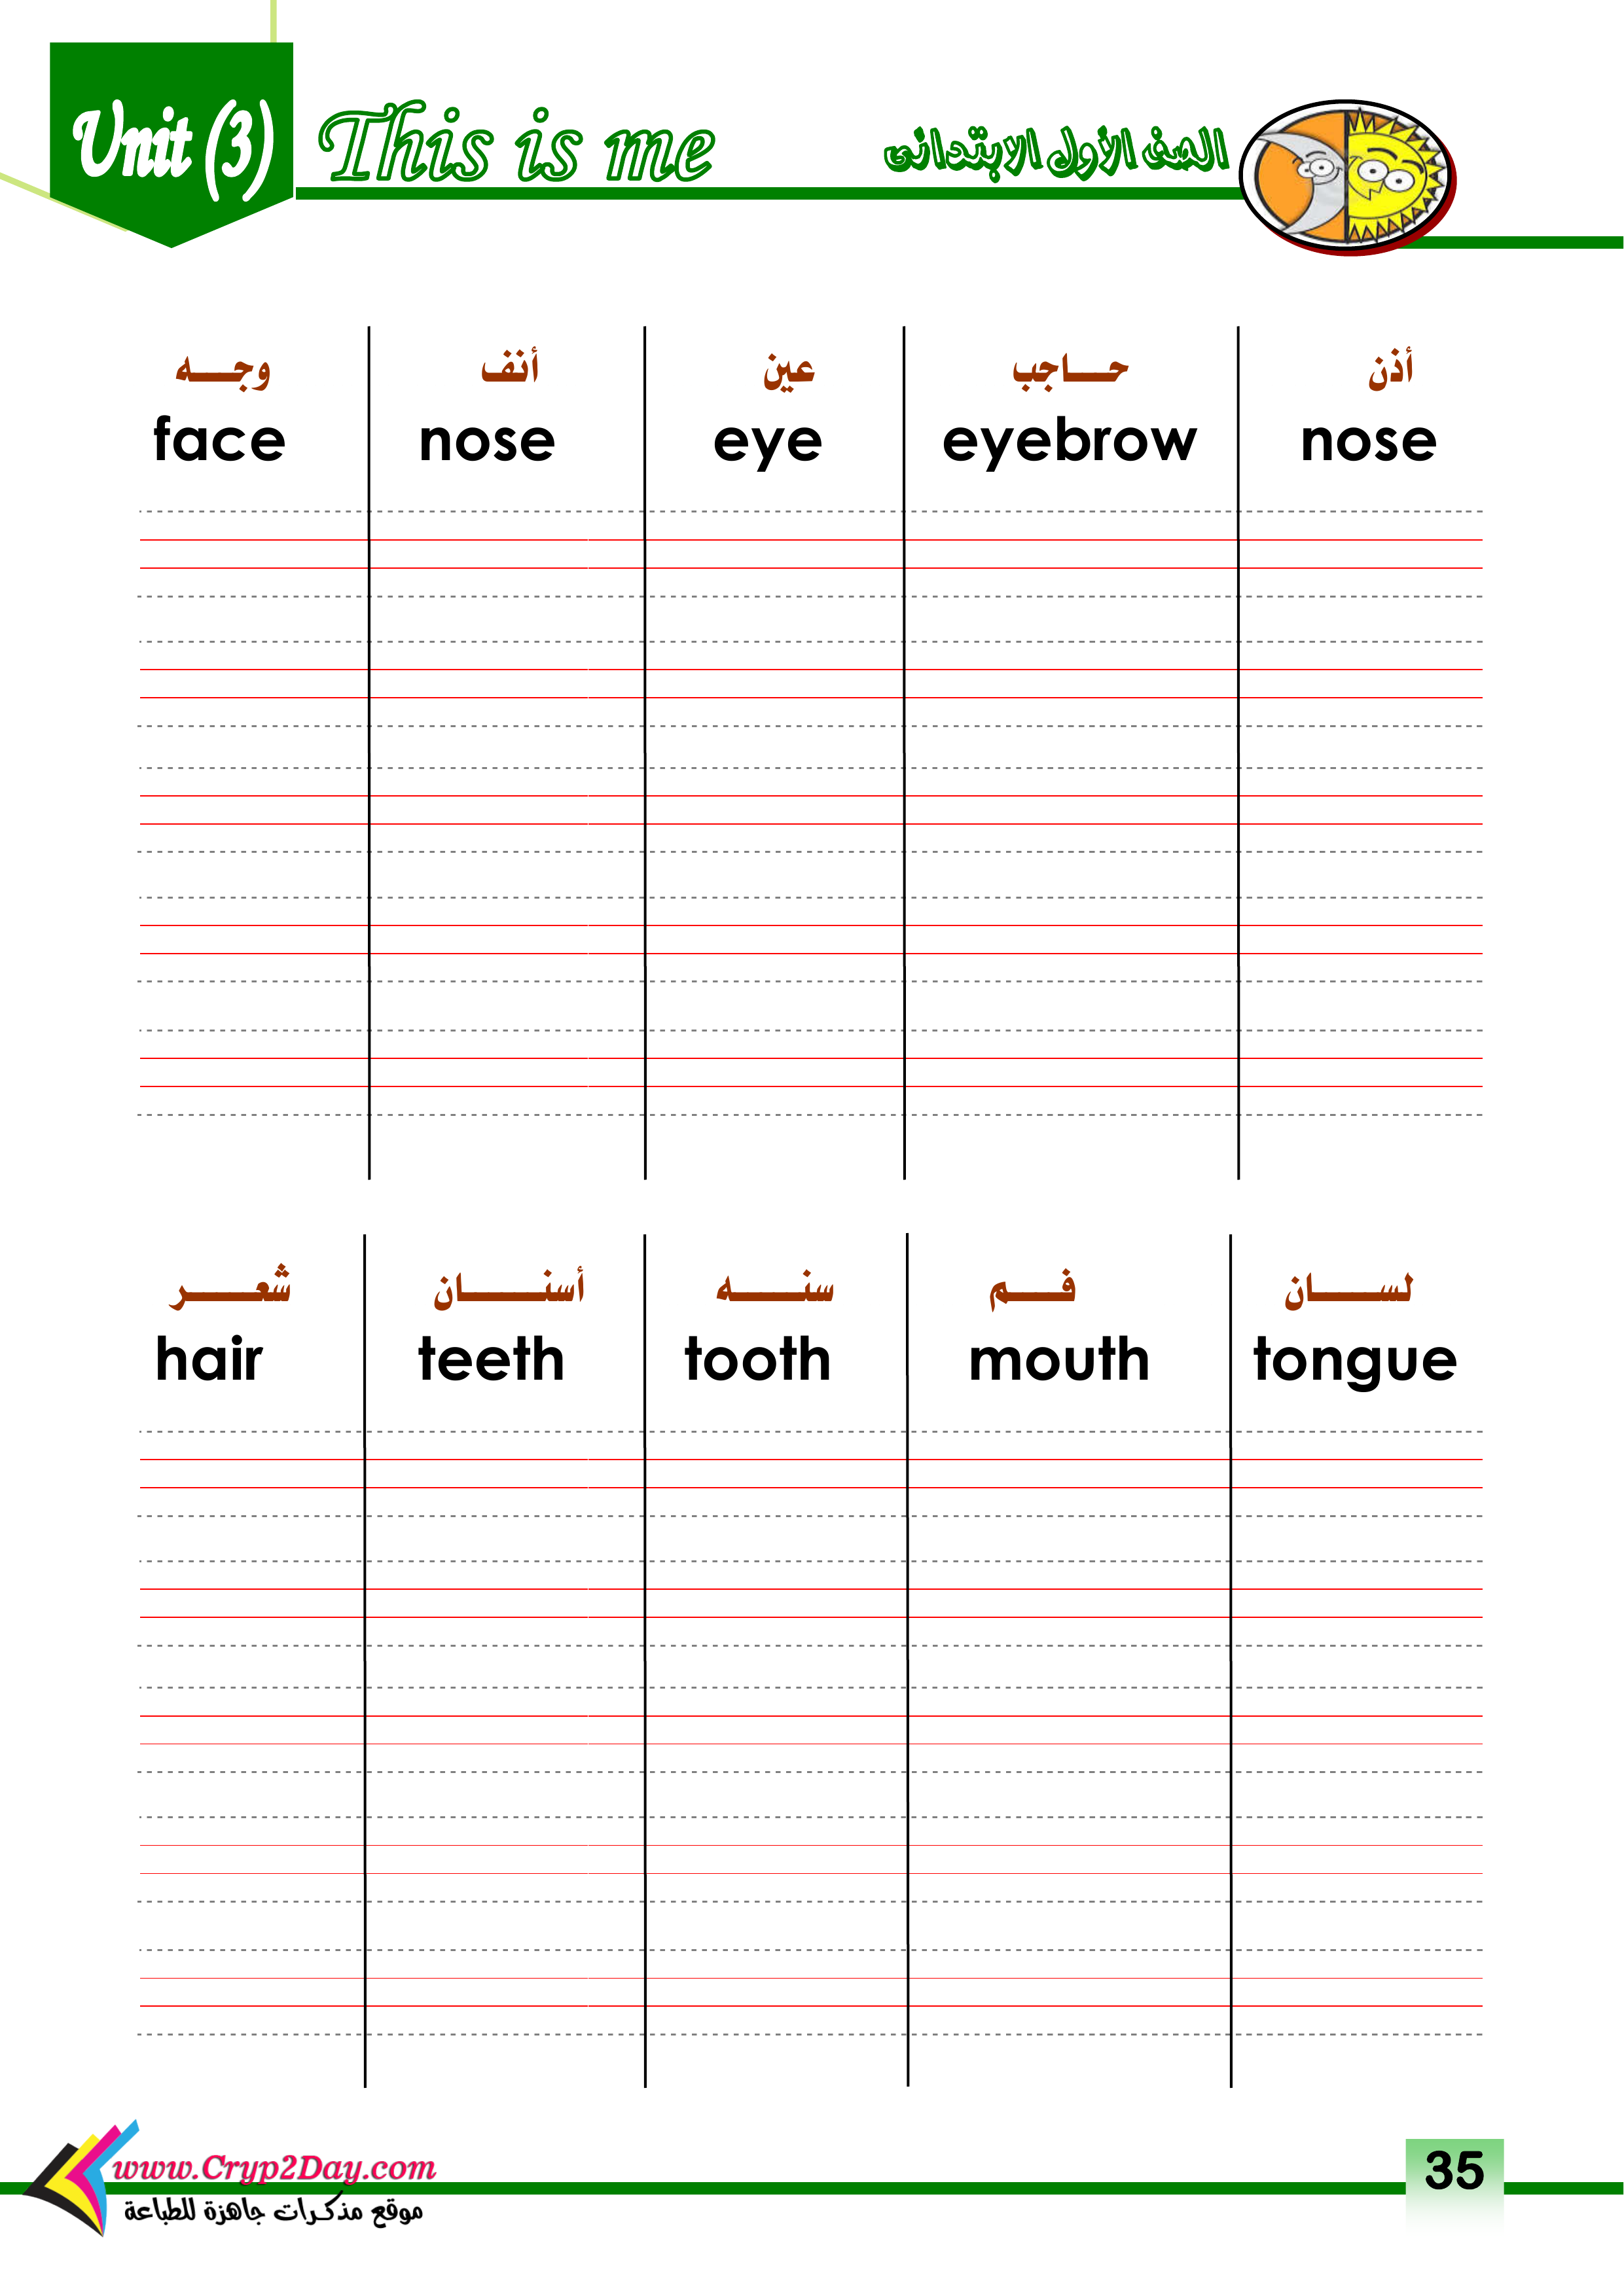 Unit (3) This is me الصف الأول الابتدائى
وجـــه أنف عين حـــاجب أذن
face nose eye eyebrow nose
شعـــر أسنـــان سنـــه فـــم لســـان
hair teeth tooth mouth tongue
www.Cryp2Day.com
موقع مذكرات جاهزة للطباعة
35